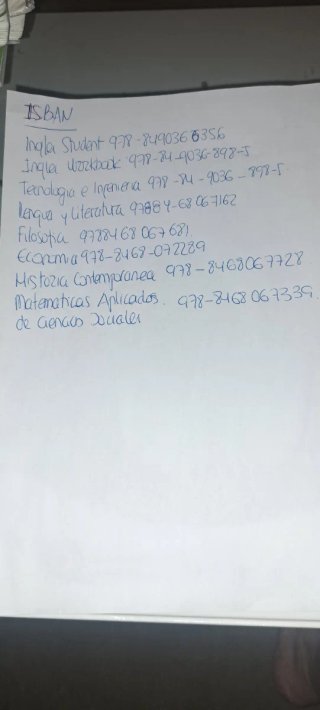 ISBAN
Ingles Student 978-8490366356
Ingles Workbook 978-84-9036-898-5
Tecnologia e Ingenieria 978-84-9036-898-5
Lengua y Literatura 97884-68067162
Filosofia 9788468067681
Economia 978-8468-072289
Historia Contemporanea 978-8468067728
Matematicas Aplicadas. 978-8468067339.
de Ciencias Sociales